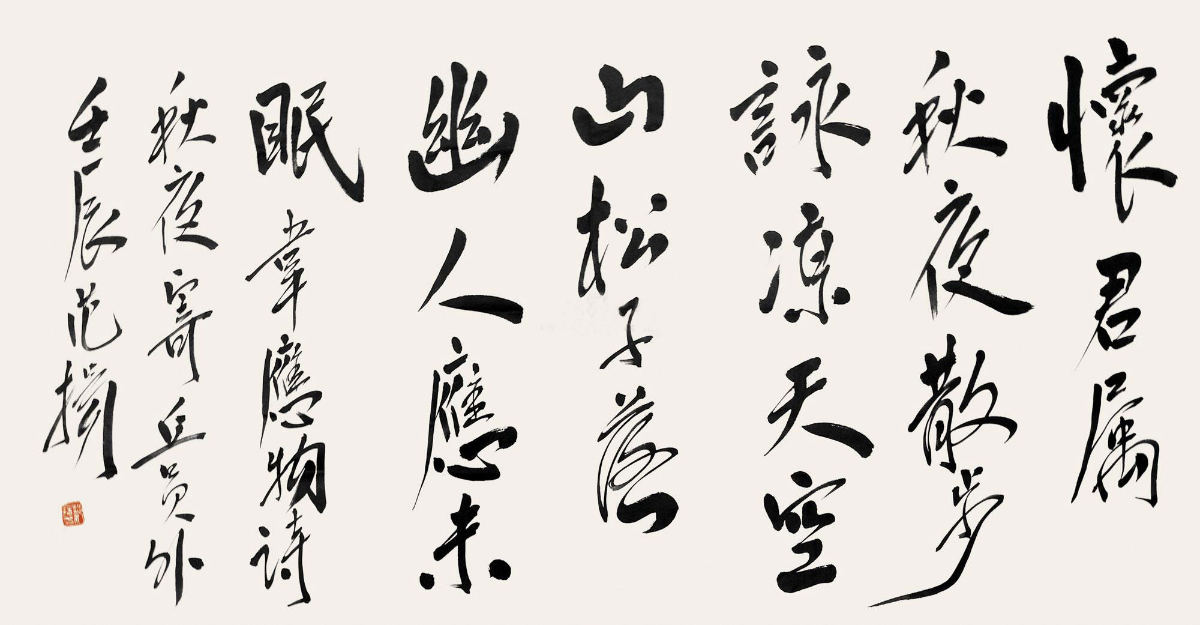 懷君属
秋夜散步
詠凉天空
山松子落
幽人應未
眠 韋應物詩
秋夜寄丘員外
壬辰范揚